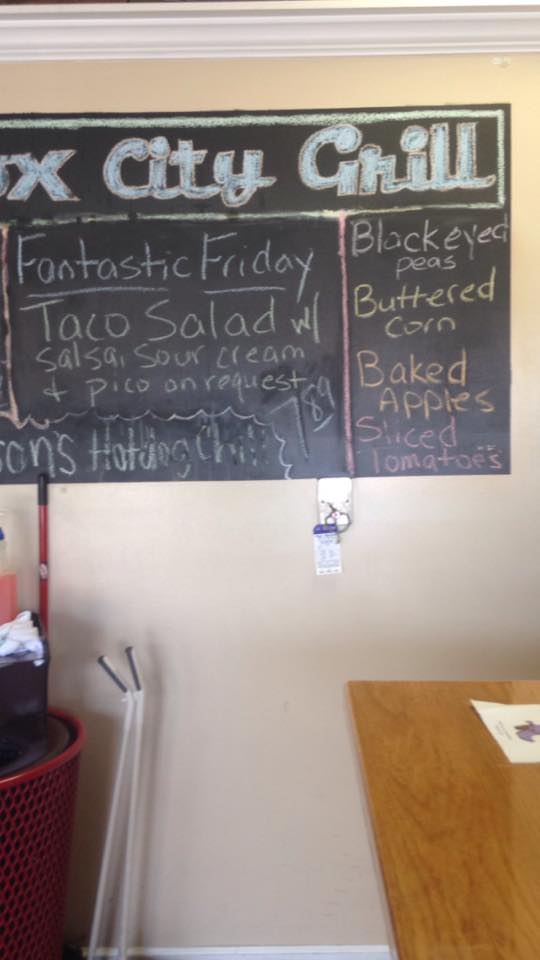 ox City Grill
Fantastic Friday
Taco Salad w/
salsa, sour cream
& pico on request
789
sons Hotdog Chili
Blackeyed
peas
Buttered
corn
Baked
Apples
Sliced
Tomatoes